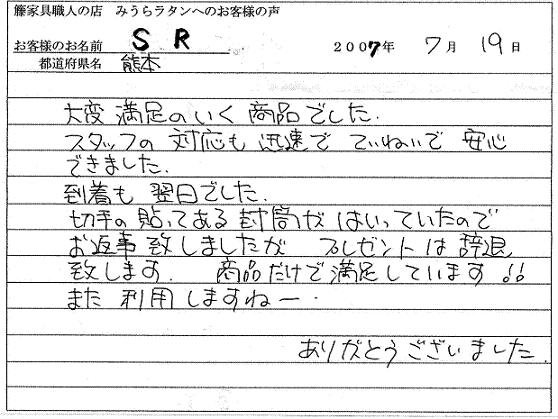 籐家具職人の店 みうらラタンへのお客様の声
お客様のお名前 S R 2007年 7月 19日
都道府県名 熊本
大変 満足のいく 商品でした.
スタッフの 対応も 迅速で ていねいで 安心
できました.
到着も 翌日でした.
切手の貼ってある封筒が はいっていたので
お返事致しましたが プレゼントは 辞退
致します. 商品だけで満足しています!!
また 利用しますねー.
ありがとうございました.